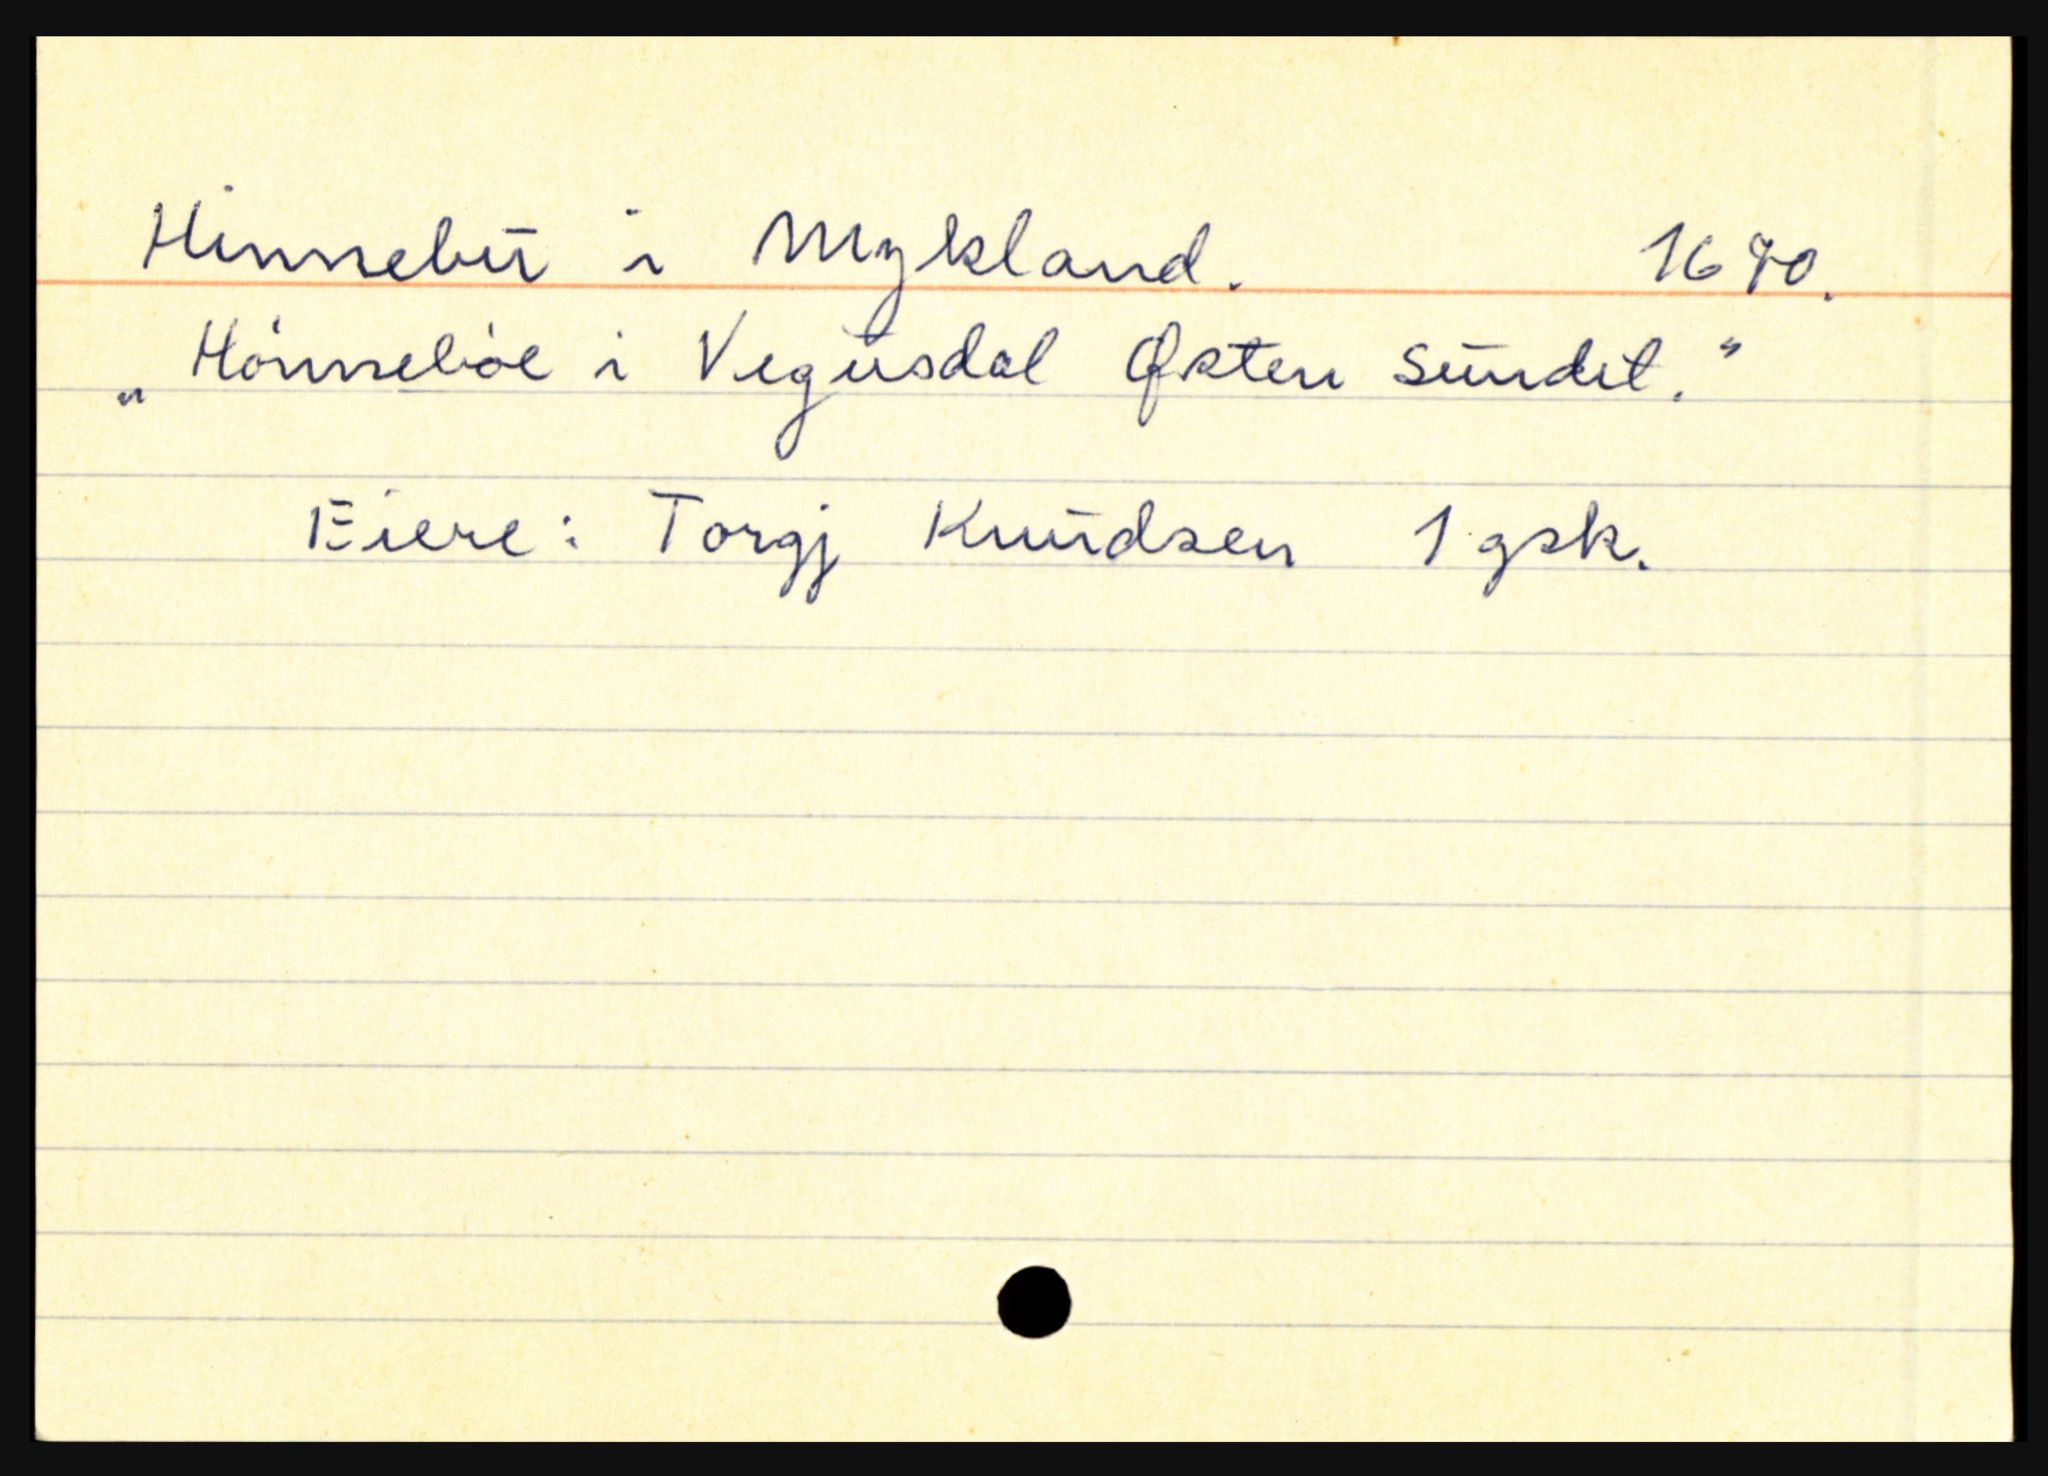 Hinnebu i Mykland. 1670.
„Hönneböe i Vegusdal Østen Sundet."
Eiere: Torgj Knudsen 1 gsk.